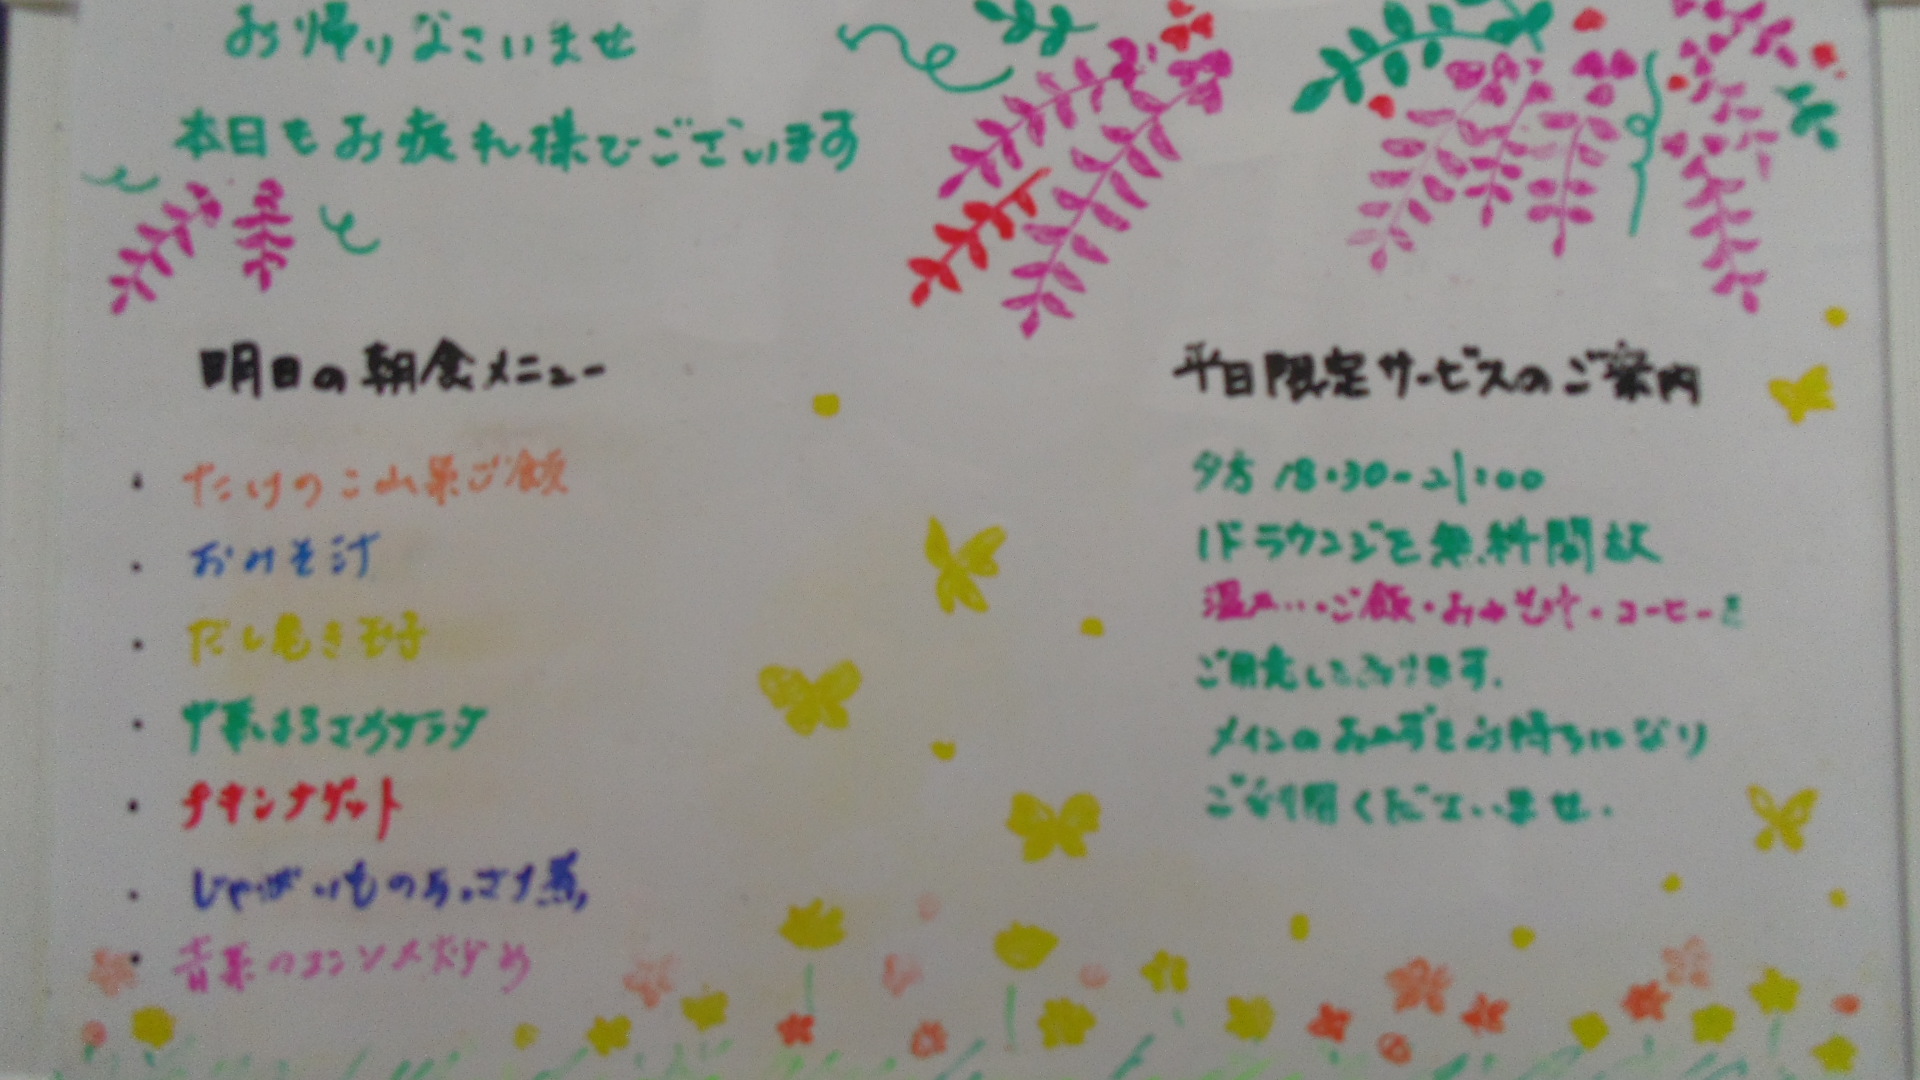 お帰りなさいませ
本日もお疲れ様でございます
明日の朝食メニュー
・たけのこ山菜ご飯
・おみそ汁
・だし巻き玉子
・中華はるさめサラダ
・チキンナゲット
・じゃがいものそぼろ煮
・青菜のコンソメ炒め
平日限定サービスのご案内
夕方 18:30-21:00
1Fラウンジを無料開放
温かい・ご飯・おみそ汁・コーヒーを
ご用意しております。
メインのおかずをお持ちになり
ご利用くださいませ。